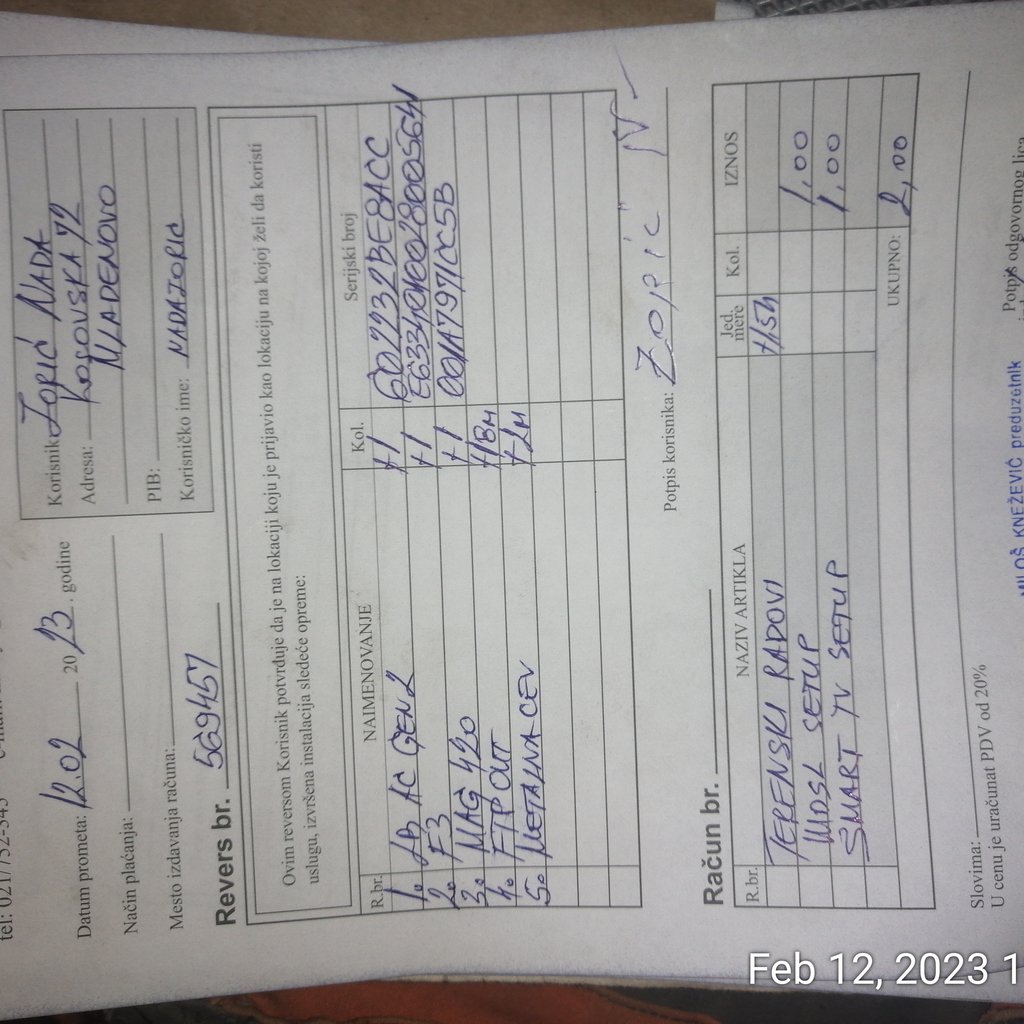 tel: 021/752-343
Datum prometa: 12.02 2023. godine
Način plaćanja:
Mesto izdavanja računa:
Korisnik Zorić NADA
Adresa: KOSOVSKA 72
MLADENOVO
PIB:
Korisničko ime: NADAZORIC
Revers br. 569457
Ovim reversom Korisnik potvrđuje da je na lokaciji koju je prijavio kao lokaciju na kojoj želi da koristi
uslugu, izvršena instalacija sledeće opreme:
R.br. NAIMENOVANJE Kol. Serijski broj
1. LB AC GEN2 +1 602232BE8ACC
2. F3 +1
3. MAG 420 +1 001A7971CC5B
4. FTP OUT +18M
5. METALNA CEV +2M
Potpis korisnika: Zorić N
Račun br.
R.br. NAZIV ARTIKLA Jed. mere Kol. IZNOS
TERENSKI RADOVI +1,5h
WDSL SETUP 1,00
SMART TV SETUP 1,00
UKUPNO: 2,00
Slovima:
U cenu je uračunat PDV od 20%
Potpis odgovornog lica
MILOŠ KNEŽEVIĆ preduzetnik
Feb 12, 2023 1